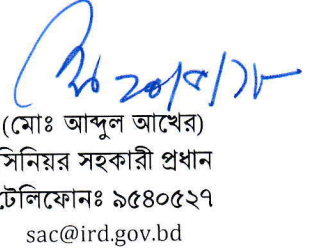 ২০/৫/১৮
(মোঃ আব্দুল আখের)
সিনিয়র সহকারী প্রধান
টেলিফোনঃ ৯৫৪০৫২৭
sac@ird.gov.bd